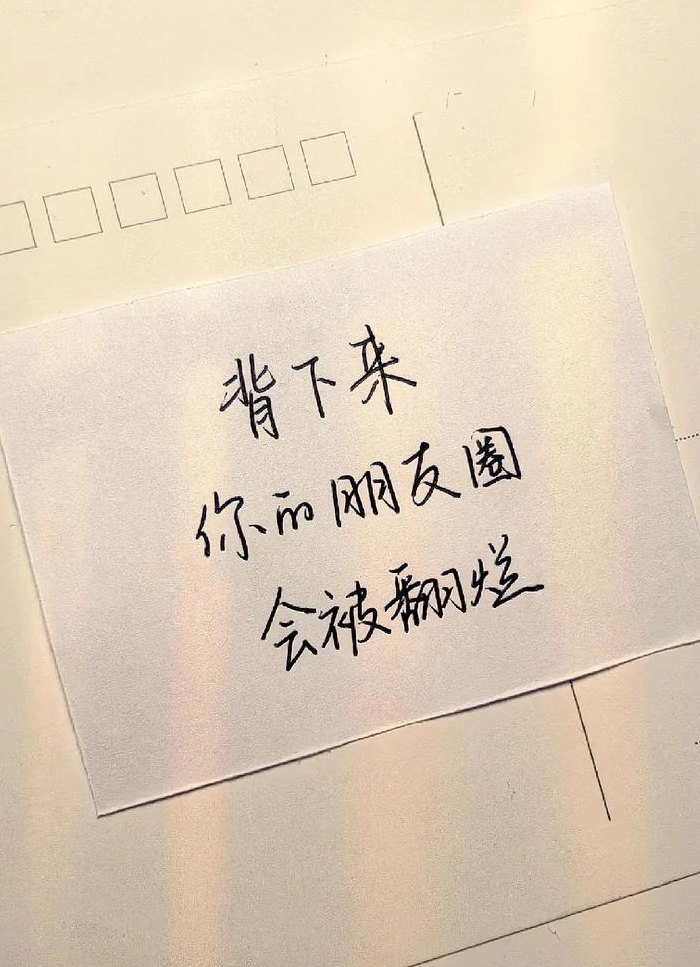 背下来
你的朋友圈
会被翻烂